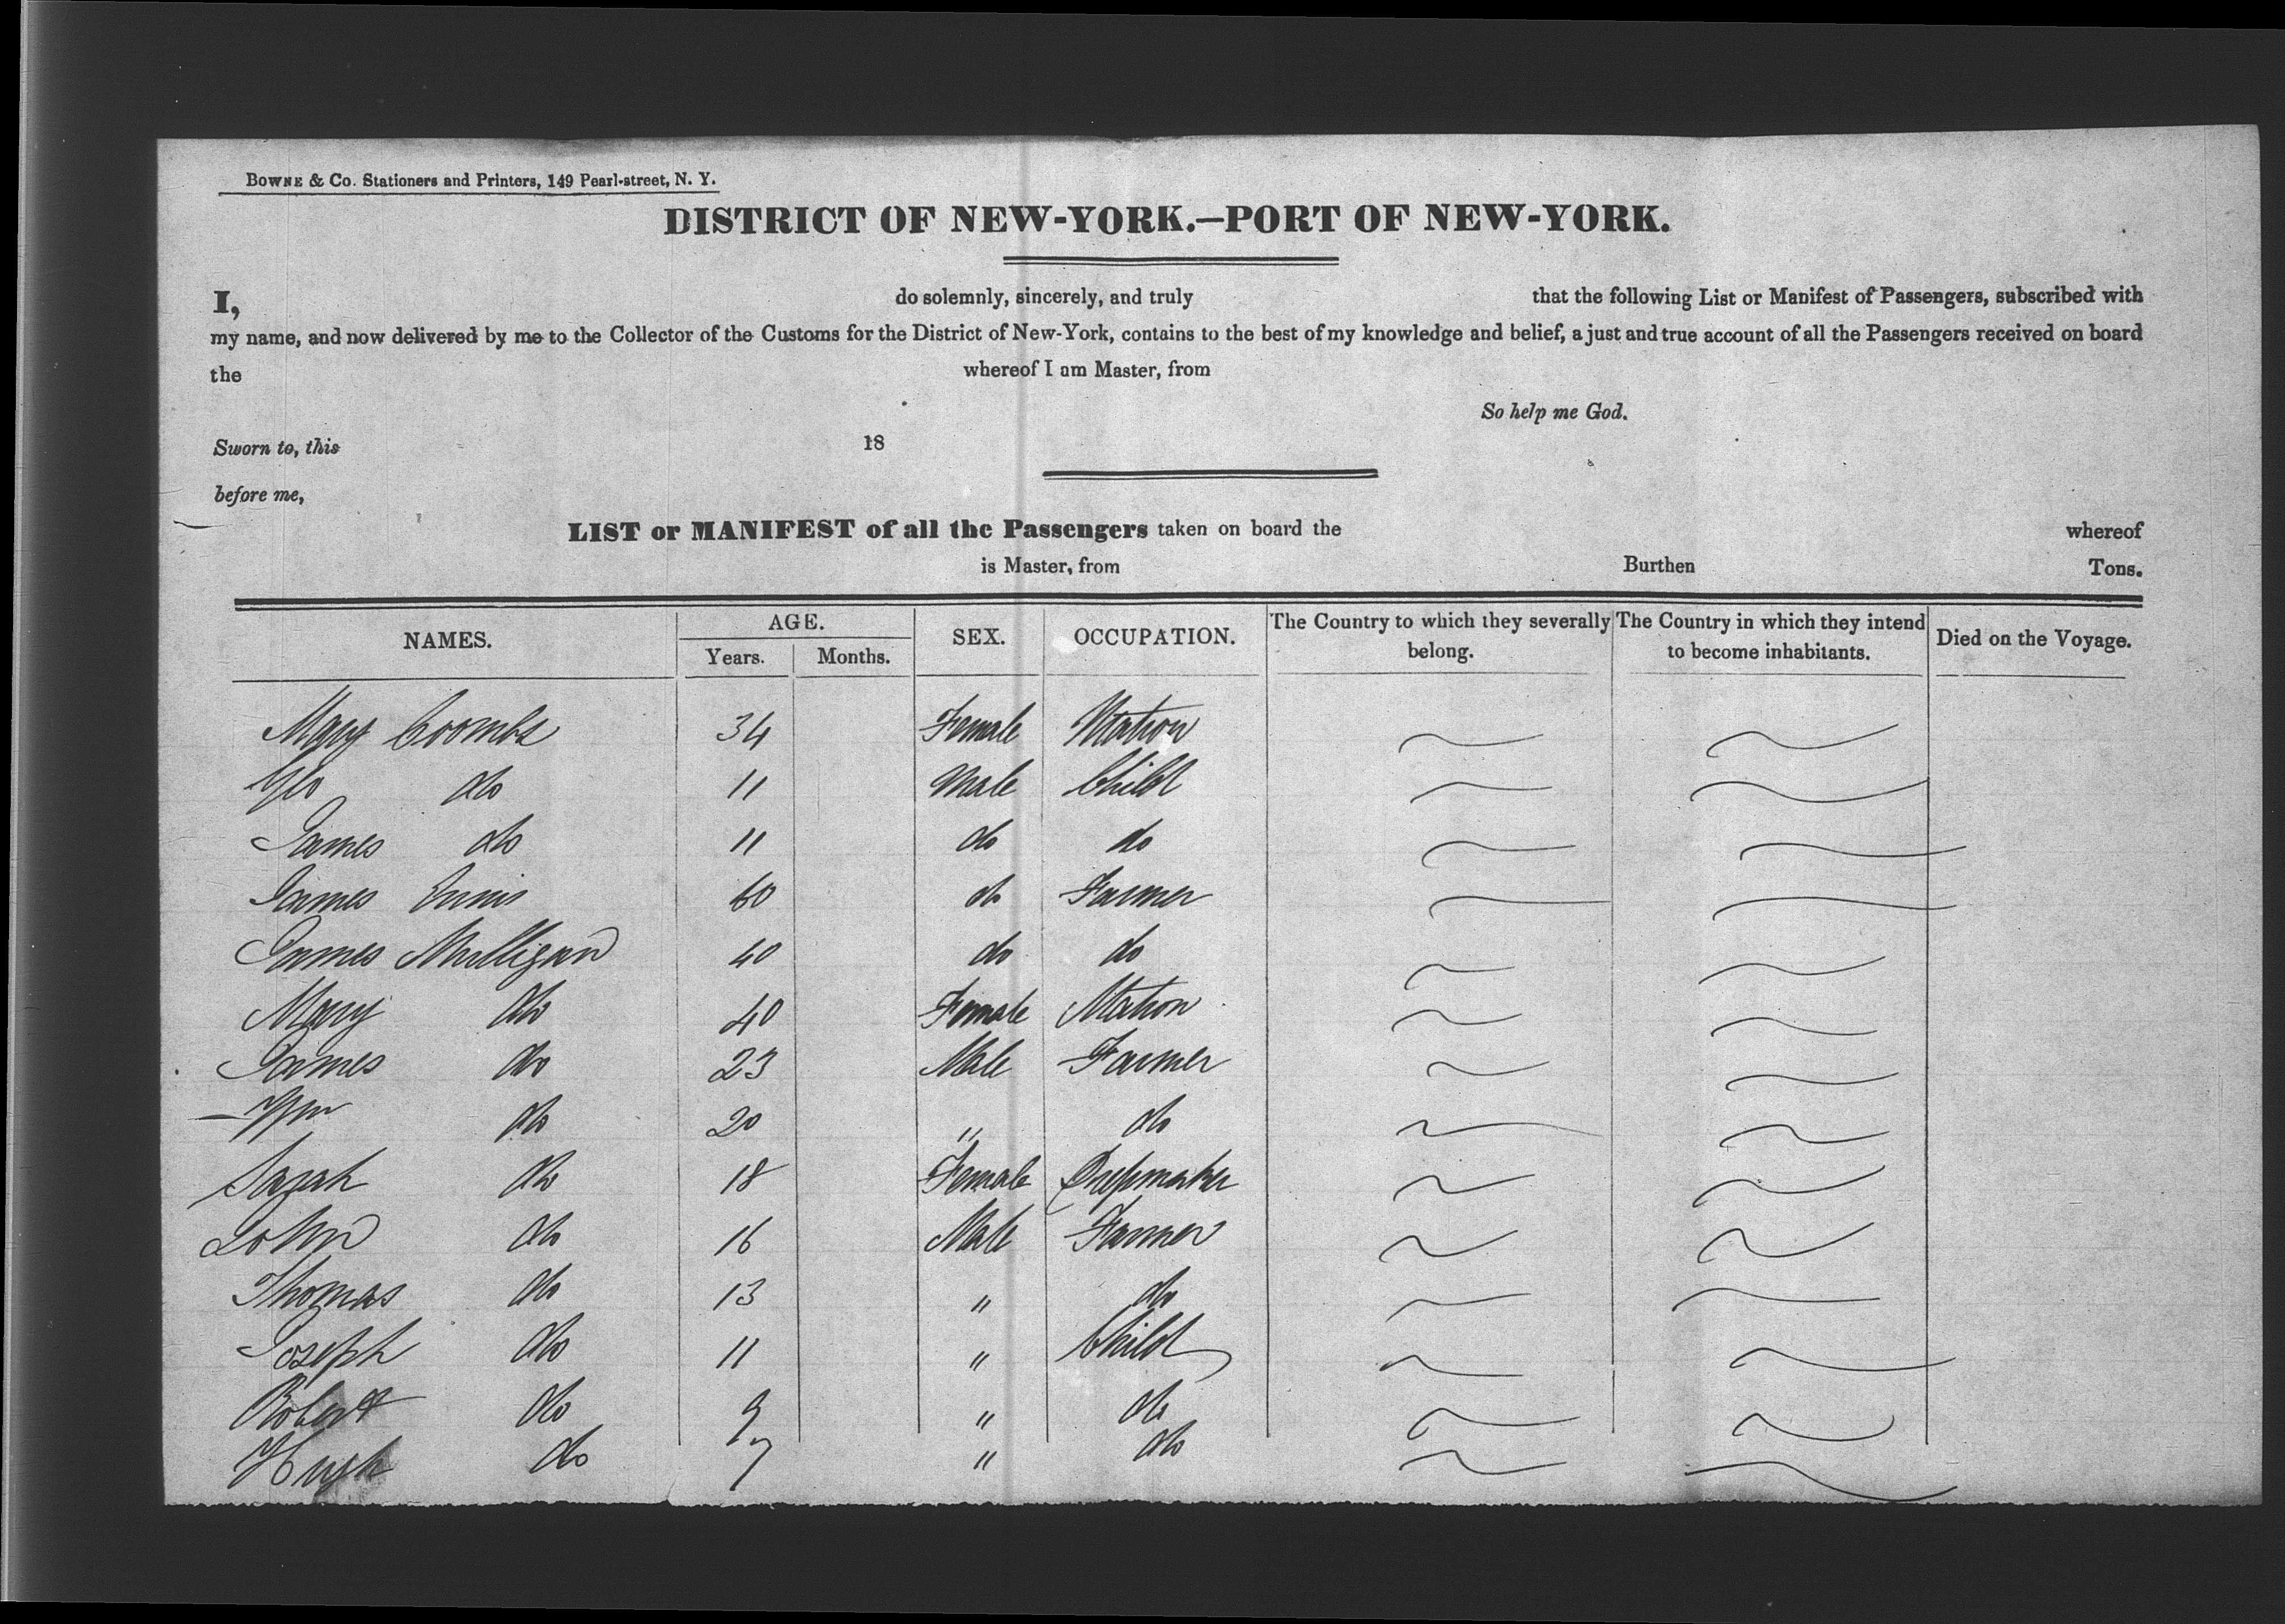 BOWNE & Co. Stationers and Printers, 149 Pearl-street, N. Y.
DISTRICT OF NEW-YORK.—PORT OF NEW-YORK.
I, do solemnly, sincerely, and truly that the following List or Manifest of Passengers, subscribed with
my name, and now delivered by me to the Collector of the Customs for the District of New-York, contains to the best of my knowledge and belief, a just and true account of all the Passengers received on board
the whereof I am Master, from
So help me God.
Sworn to, this 18
before me,
LIST or MANIFEST of all the Passengers taken on board the whereof
is Master, from Burthen Tons.
NAMES. AGE. SEX. OCCUPATION. The Country to which they severally belong. The Country in which they intend to become inhabitants. Died on the Voyage.
Years. Months.
Mary Coombs 34 Female Matron
Geo do 11 Male Child
James do 11 do do
James Ennis 60 do Farmer
James Mulligan 40 do do
Mary do 40 Female Matron
James do 23 Male Farmer
Wm do 20 " do
Sarah do 18 Female Dressmaker
John do 16 Male Farmer
Thomas do 13 " do
Joseph do 11 " Child
Robert do 9 " do
Hugh do 7 " do